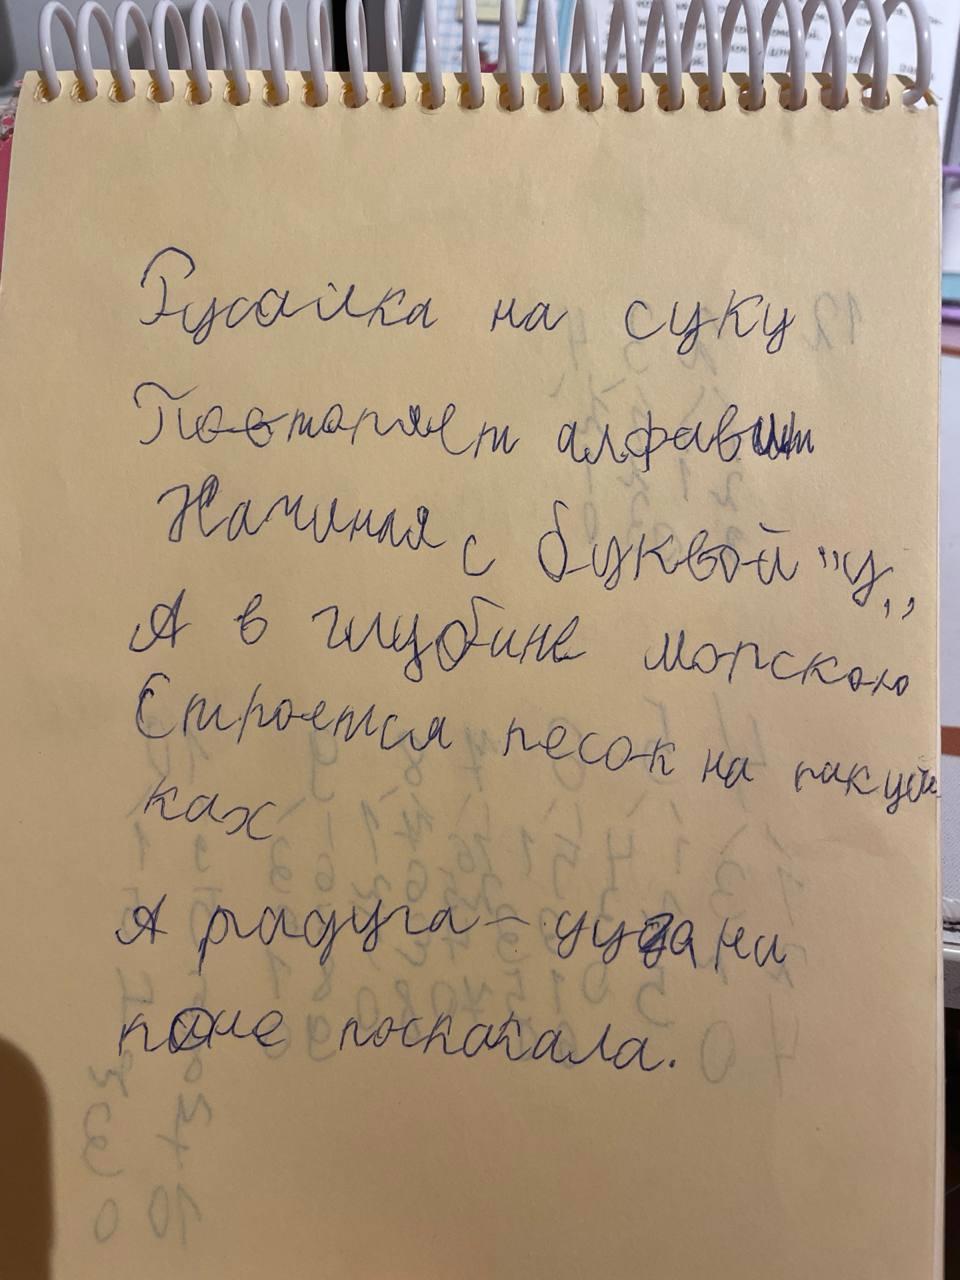 Русалка на суку
Повторяет алфавит
Начиная с буквой "у,,
А в глубине морскою
Строется песок на ракуш
ках
А радуга – уудани
поле поскакала.